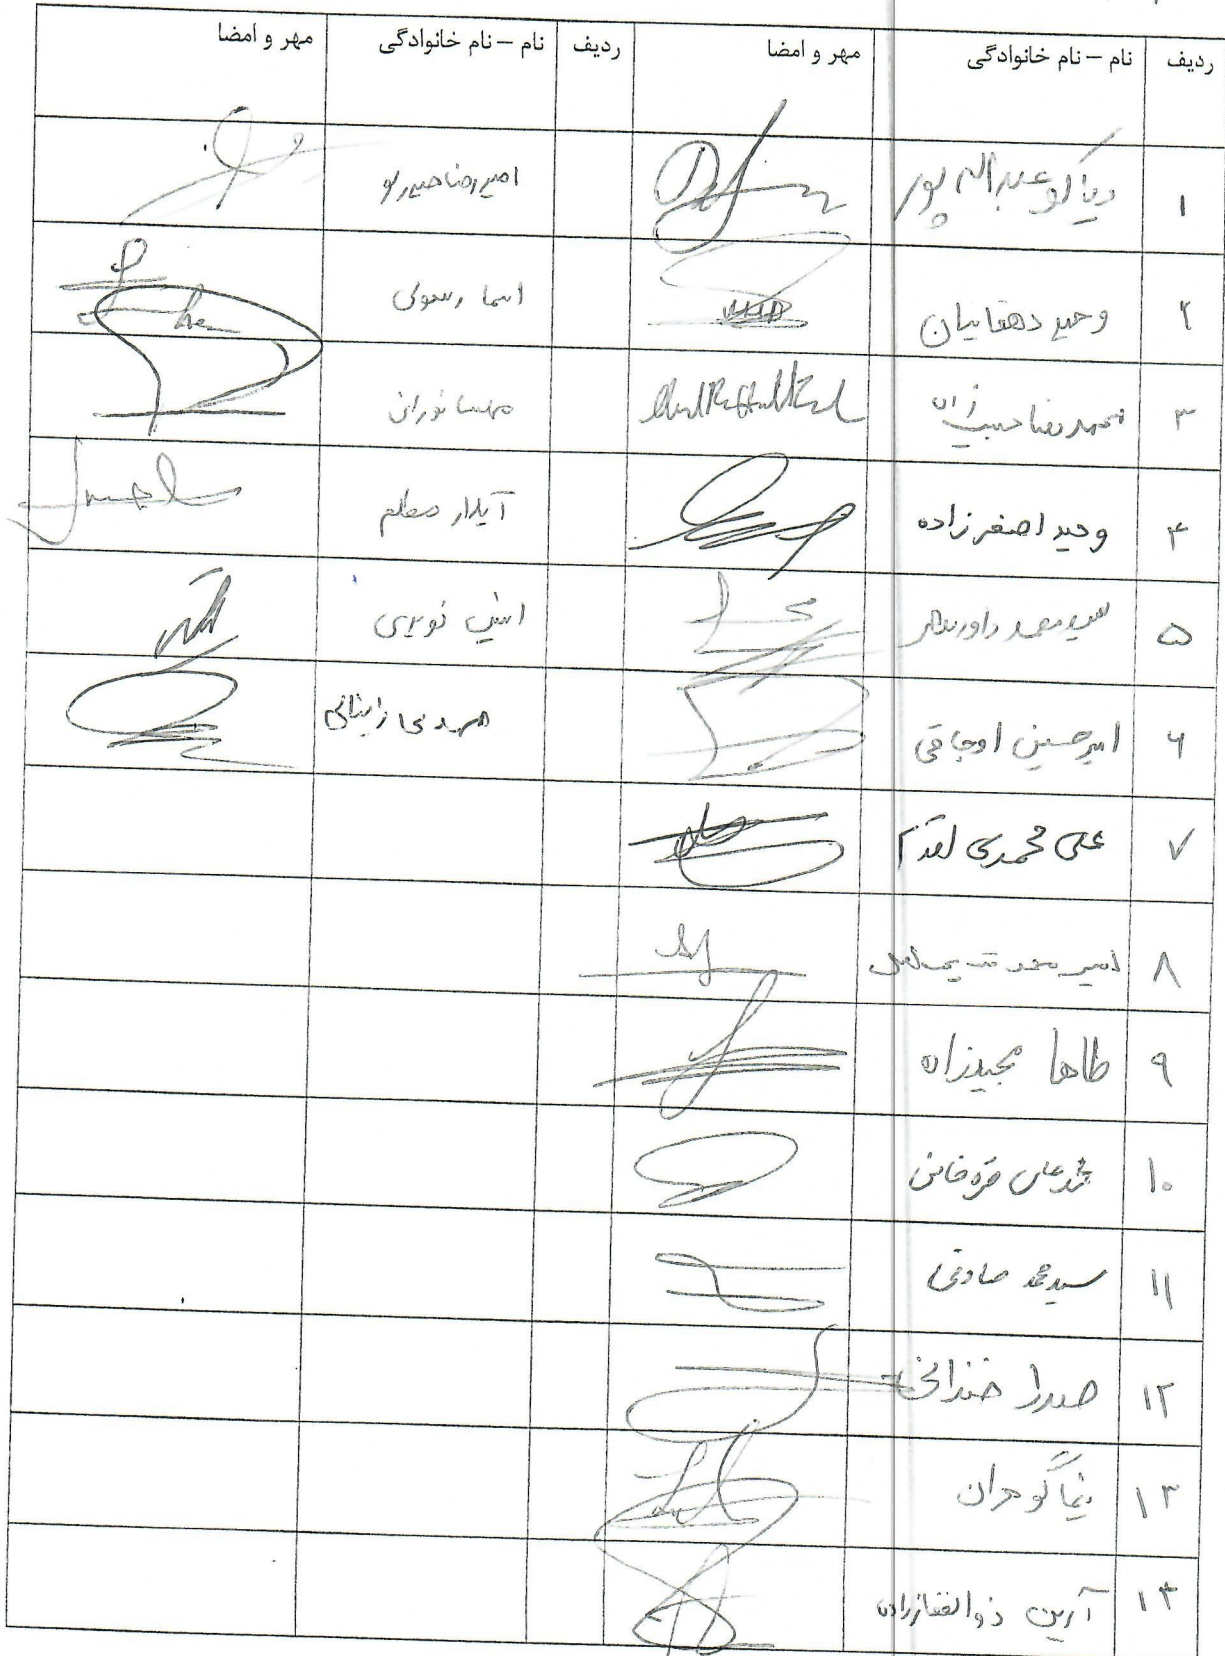 ردیف نام – نام خانوادگی مهر و امضا ردیف نام – نام خانوادگی مهر و امضا
۱ دیاکو عبداله پور امیررضا حیدرلو
۲ وحید دهقانیان اسما رسولی
۳ محمدرضا حبیب زاده مهسا نورانی
۴ وحید اصغرزاده آیلار معلم
۵ سید محمد
۶ امیرحسین اوجاقی مهدی
۷ علی محمدی اقدم
۸ امیر محمد
۹ طاها مجیدزاده
۱۰ محمدعلی قره خانی
۱۱ سیدمحمد صادقی
۱۲ صدرا
۱۳ نیما گوهران
۱۴ آرین ذوالفقارزاده